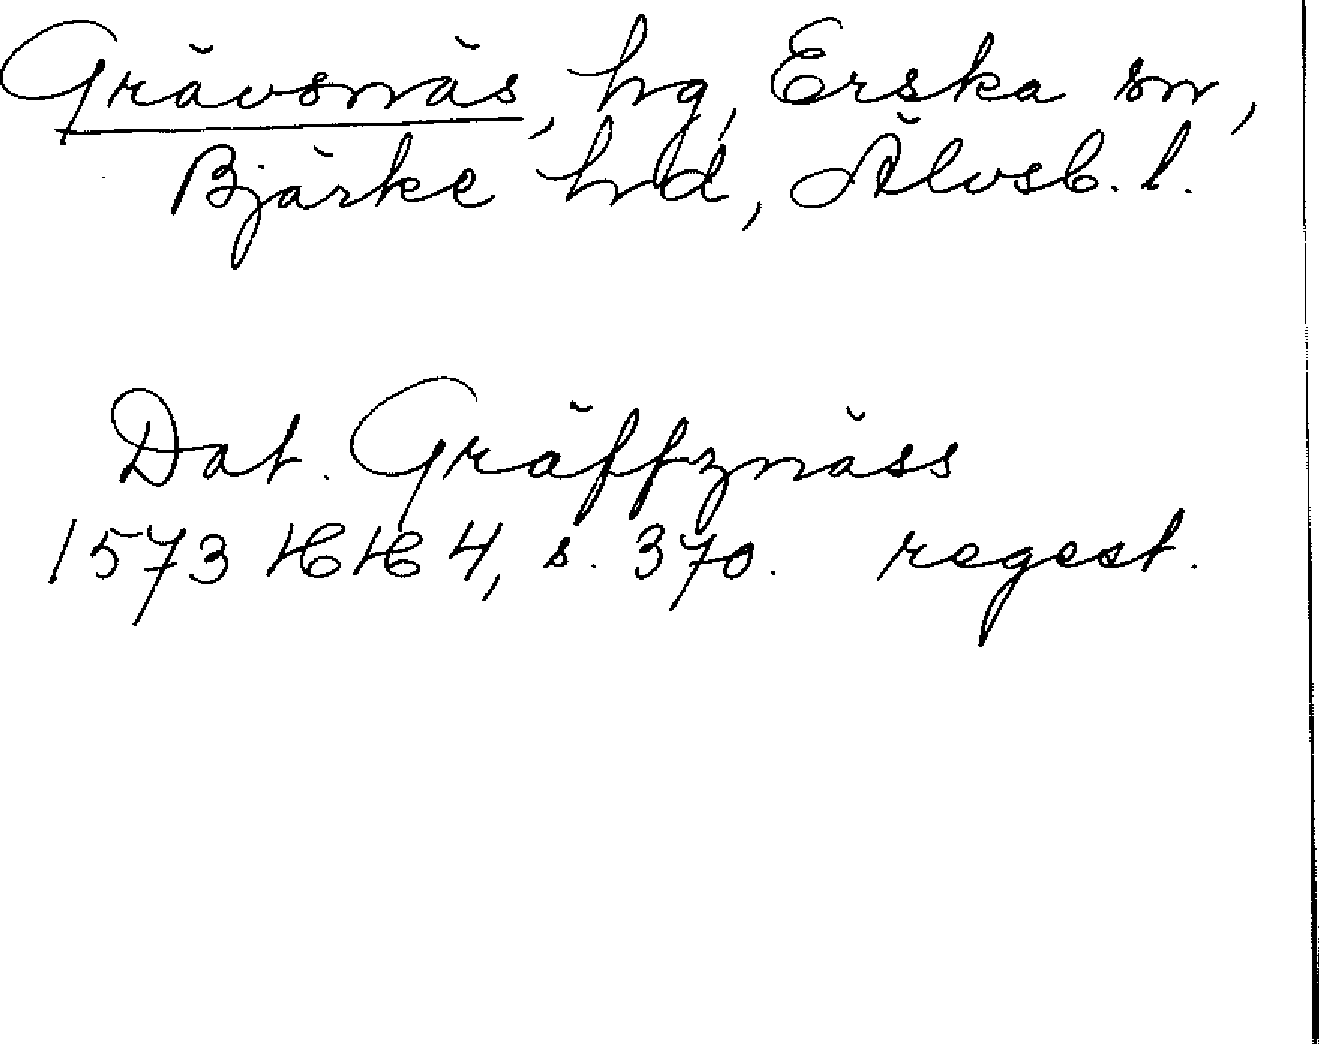 Grävsnäs, hg, Erska sn,
Bjärke hd, Älvsb. l.
Dat. Gräffznäss
1573 HH 4, s. 370. regest.